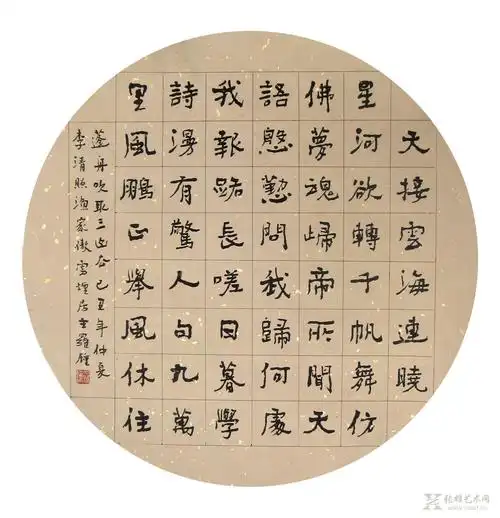 天接雲海連曉
星河欲轉千帆舞仿
佛夢魂歸帝所聞天
語慇懃問我歸何處
我報路長嗟日暮學
詩漫有驚人句九萬
里風鵬正舉風休住
蓬舟吹取三山去己丑年仲夏
李清照漁家傲雪堙居主羅
张雄艺术网